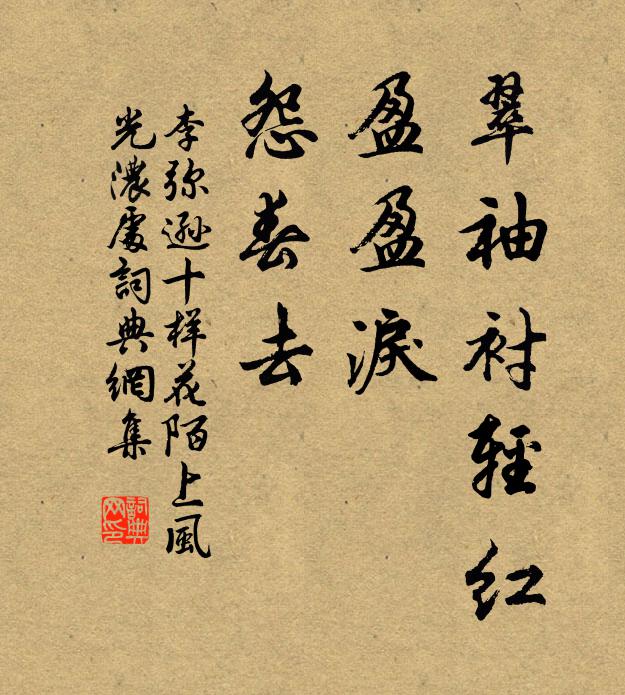 翠袖衬輕红
盈盈淚
怨春去
李弥遜十样花陌上風
光濃處詞典網集
詞典
网印